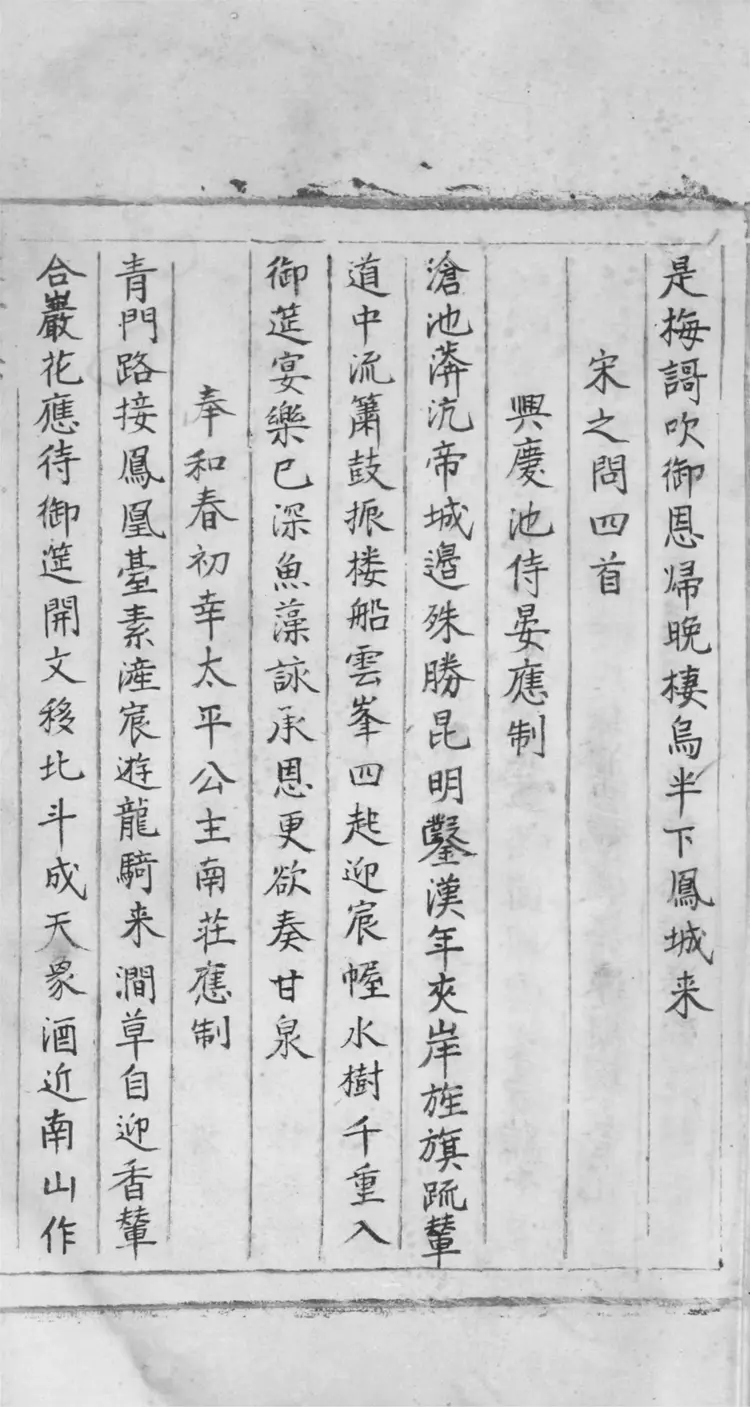 是梅謌吹御恩㱕晚棲烏半下鳳城来
宋之問四首
興慶池侍晏應制
滄池漭沆帝城邉殊勝昆明鑿漢年夾岸旌旗䟽輦
道中流簫鼓振楼船雲峯四起迎宸幄水樹千重入
御莚宴樂已深魚藻詠承恩更欲奏甘泉
奉和春初幸太平公主南莊應制
青門路接鳳凰臺素滻宸遊龍騎来澗草自迎香輦
合巖花應待御莚開文移北斗成天象酒近南山作